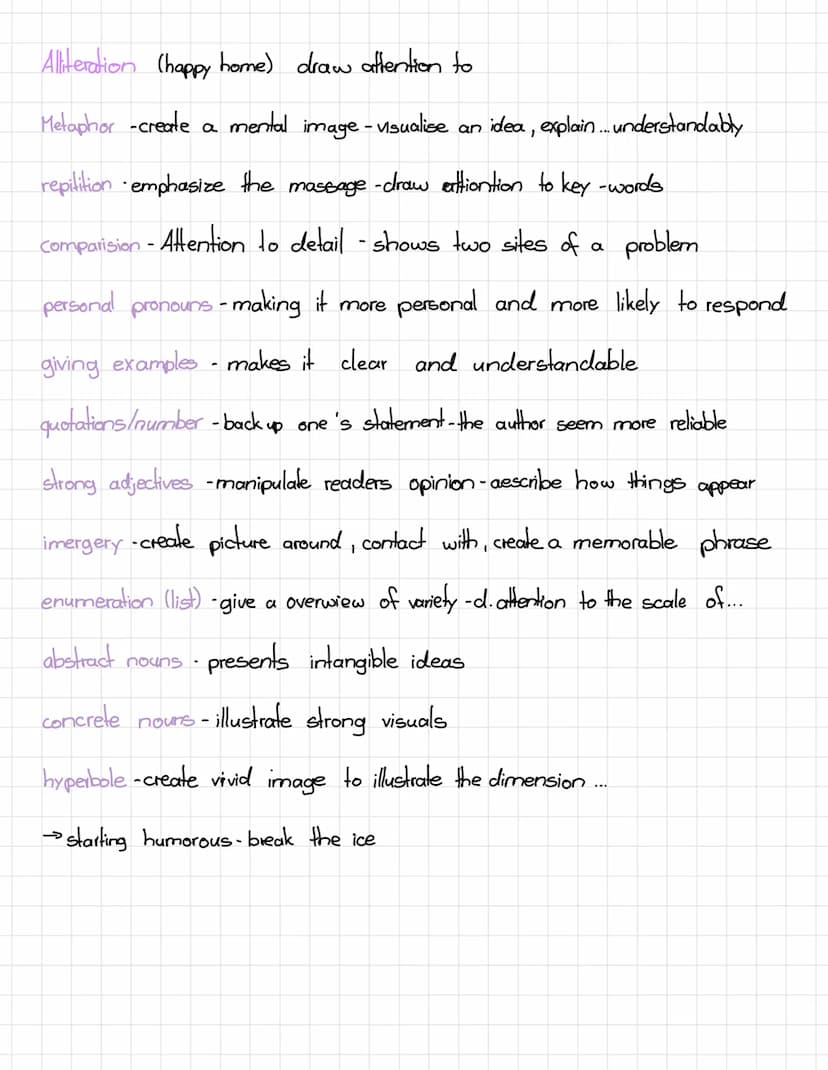 Alliteration (happy home) draw attention to
Metaphor -create a mental image - visualise an idea, explain... understandably
repitition - emphasize the massage - draw attiontion to key -words
comparision - Attention to detail - shows two sites of a problem
personal pronouns - making it more personal and more likely to respond
giving examples - makes it clear and understandable
quotations/number - back up one's statement - the author seem more reliable
strong adjectives - manipulate readers opinion - describe how things appear
imergery - create picture around, contact with, create a memorable phrase
enumeration (list) - give a overwiew of variety - d. attention to the scale of...
abstract nouns - presents intangible ideas
concrete nouns - illustrate strong visuals
hyperbole - create vivid image to illustrate the dimension ...
→ starting humorous - break the ice